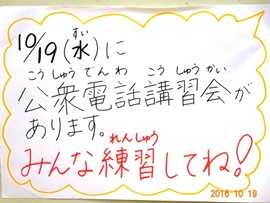 10/19(水)に
すい
こうしゅうでんわ こうしゅうかい
公衆電話講習会が
あります。
れんしゅう
みんな練習してね!
2016 10 19